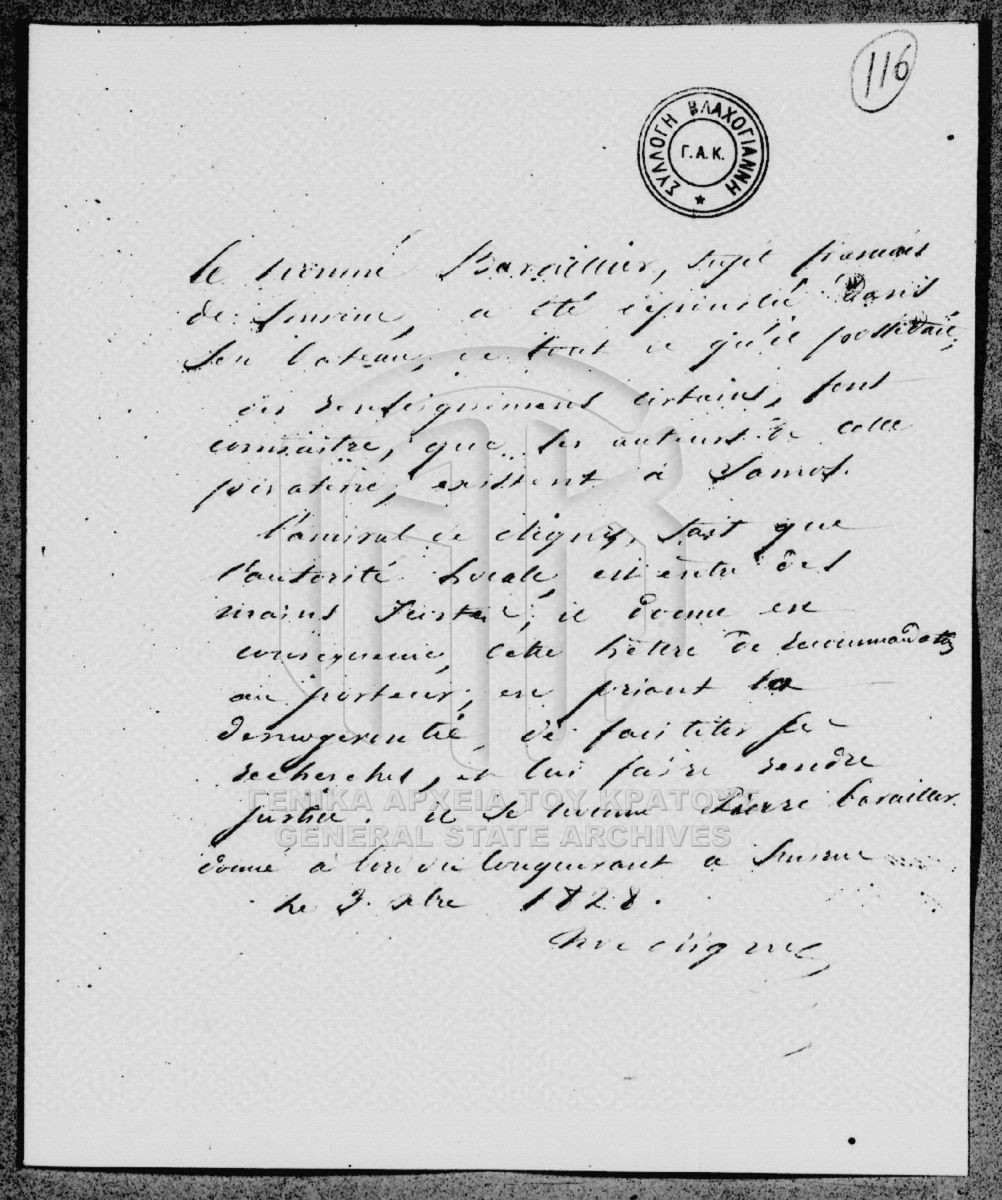 116
ΣΥΛΛΟΓΗ ΒΛΑΧΟΓΙΑΝΝΗ
Γ.Α.Κ.
le nommé Baraillier, sujet français
de Smirne, a été dans
son bateau, de tout ce qu'il possédait,
des renseignemens certains, font
connaitre, que les auteurs de cette
piraterie, existent à Samos.
l'amiral de Rigny, sait que
l'autorité locale, est entre des
mains, il donne en
consequence, cette lettre de recommandation
au porteur, en priant la
demogerontié, de faciliter ses
recherches, et lui faire rendre
justice. il se nomme Pierre Barailler.
ΓΕΝΙΚΑ ΑΡΧΕΙΑ ΤΟΥ ΚΡΑΤΟΥΣ
GENERAL STATE ARCHIVES
donné à bord du Conquerant a Smirne
le 3. 1828.
de Rigny